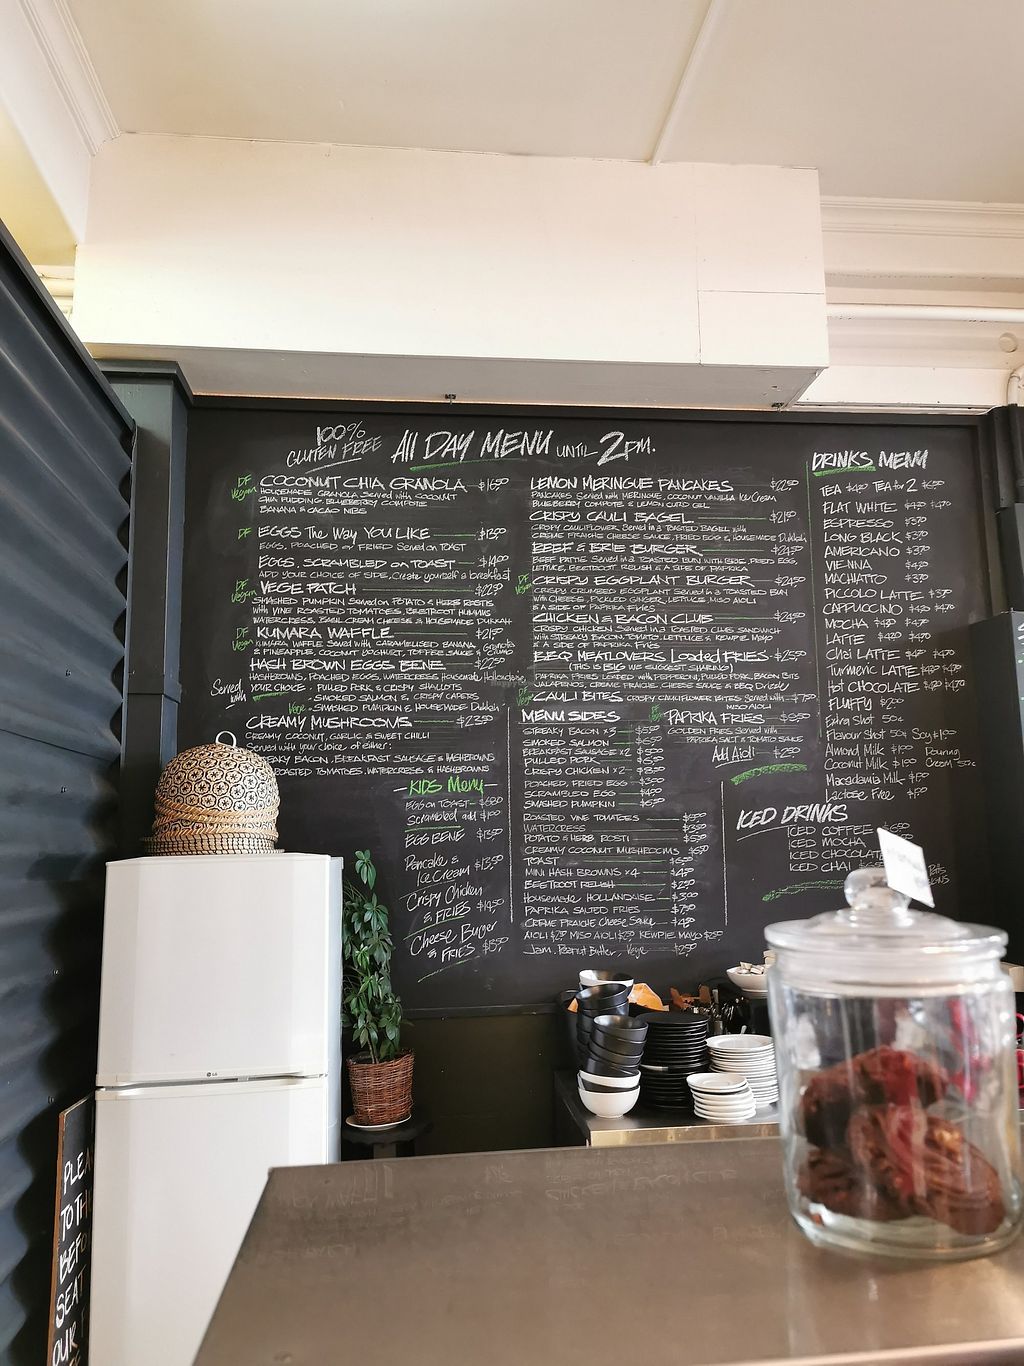 100%
GLUTEN FREE
All DAY MENU UNTIL 2PM.
DF
Vegan
COCONUT CHIA GRANOLA
HOUSEMADE GRANOLA Served with COCONUT
CHIA PUDDING, BLUEBERRY COMPOTE
BANANA & CACAO NIBS
DF EGGS The Way YOU LIKE
EGGS, POACHED or FRIED Served on TOAST
EGGS, SCRAMBLED on TOAST
ADD YOUR CHOICE OF SIDE, Create yourself a breakfast
DF
Vegan
VEGE PATCH $22.50
SMASHED PUMPKIN Served on POTATO & HERB ROSTI
with VINE ROASTED TOMATOES, BEETROOT HUMMUS
WATERCRESS, BASIL CREAM CHEESE & HOUSEMADE DUKKAH
DF
Vegan
KUMARA WAFFLE
KUMARA WAFFLE Served with CARAMELISED BANANA, Granola
& PINEAPPLE, COCONUT YOGHURT, TOFFEE SAUCE & Crumb
HASH BROWN EGGS BENE $22.50
HASHBROWNS, POACHED EGGS, WATERCRESS Housemade Hollandaise,
Served with
YOUR CHOICE. PULLED PORK & CRISPY SHALLOTS
SMOKED SALMON & CRISPY CAPERS
Vege - SMASHED PUMPKIN & HOUSEMADE Dukkah
CREAMY MUSHROOMS $23.50
CREAMY COCONUT, GARLIC & SWEET CHILLI
Served with your choice of either:
BACON, BREAKFAST SAUSAGE & HASHBROWNS
ROASTED TOMATOES, WATERCRESS & HASHBROWNS
KIDS Menu
EGG on TOAST
Scrambled add $1.00
EGG BENE $13.50
Pancake &
Ice Cream $13.50
Crispy Chicken
& FRIES $14.50
Cheese Burger
& FRIES
LEMON MERINGUE PANCAKES $22.50
PANCAKES Served with MERINGUE, COCONUT VANILLA Ice Cream
BLUEBERRY COMPOTE & LEMON CURD GEL
CRISPY CAULI BAGEL $21.50
CRISPY CAULIFLOWER, Served in a TOASTED BAGEL with
CREME FRAICHE CHEESE SAUCE, FRIED EGG & HOUSEMADE Dukkah
BEEF & BRIE BURGER $24.50
BEEF PATTIE Served in a TOASTED BUN with BRIE, FRIED EGG,
LETTUCE, BEETROOT RELISH & A SIDE OF PAPRIKA
DF
Vegan
CRISPY EGGPLANT BURGER $24.50
CRISPY CRUMBED EGGPLANT Served in a TOASTED BUN
with CHEESE, PICKLED GINGER, LETTUCE, MISO AIOLI
& A SIDE OF PAPRIKA FRIES
CHICKEN & BACON CLUB $24.50
CRISPY CHICKEN Served in a TOASTED CLUB SANDWICH
with STREAKY BACON, TOMATO, LETTUCE & KEWPIE MAYO
& A SIDE OF PAPRIKA FRIES
BBQ MEATLOVERS Loaded FRIES $25.50
(THIS is BIG WE SUGGEST SHARING)
PAPRIKA FRIES LOADED with PEPPERONI, PULLED PORK, BACON BITS
JALAPENOS, CREME FRAICHE, CHEESE SAUCE & BBQ Drizzle
CAULI BITES CRISPY CAULIFLOWER BITES Served with
MISO AIOLI
MENU SIDES
STREAKY BACON x3
SMOKED SALMON
BREAKFAST SAUSAGE x2
PULLED PORK
CRISPY CHICKEN x2
POACHED, FRIED EGG
SCRAMBLED EGG
SMASHED PUMPKIN
ROASTED VINE TOMATOES
WATERCRESS
POTATO & HERB ROSTI
CREAMY COCONUT MUSHROOMS
TOAST
MINI HASH BROWNS x4
BEETROOT RELISH
Housemade HOLLANDAISE $3.00
PAPRIKA SALTED FRIES
CREME FRAICHE Cheese Sauce
AIOLI MISO AIOLI KEWPIE MAYO
Jam, Peanut Butter, Vege
PAPRIKA FRIES
GOLDEN FRIES Served with
PAPRIKA SALT & TOMATO SAUCE
Add Aioli
DRINKS MENU
TEA TEA for 2
FLAT WHITE
ESPRESSO
LONG BLACK
AMERICANO
VIENNA
MACHIATTO
PICCOLO LATTE
CAPPUCCINO
MOCHA
LATTE
Chai LATTE
Turmeric LATTE
Hot CHOCOLATE
FLUFFY
Extra Shot 50c
Flavour Shot 50c Soy
Almond Milk Pouring
Coconut Milk Cream 50c
Macadamia Milk
Lactose Free
ICED DRINKS
ICED COFFEE
ICED MOCHA
ICED CHOCOLATE
ICED CHAI
LG
TO TH
SEAT
OUR